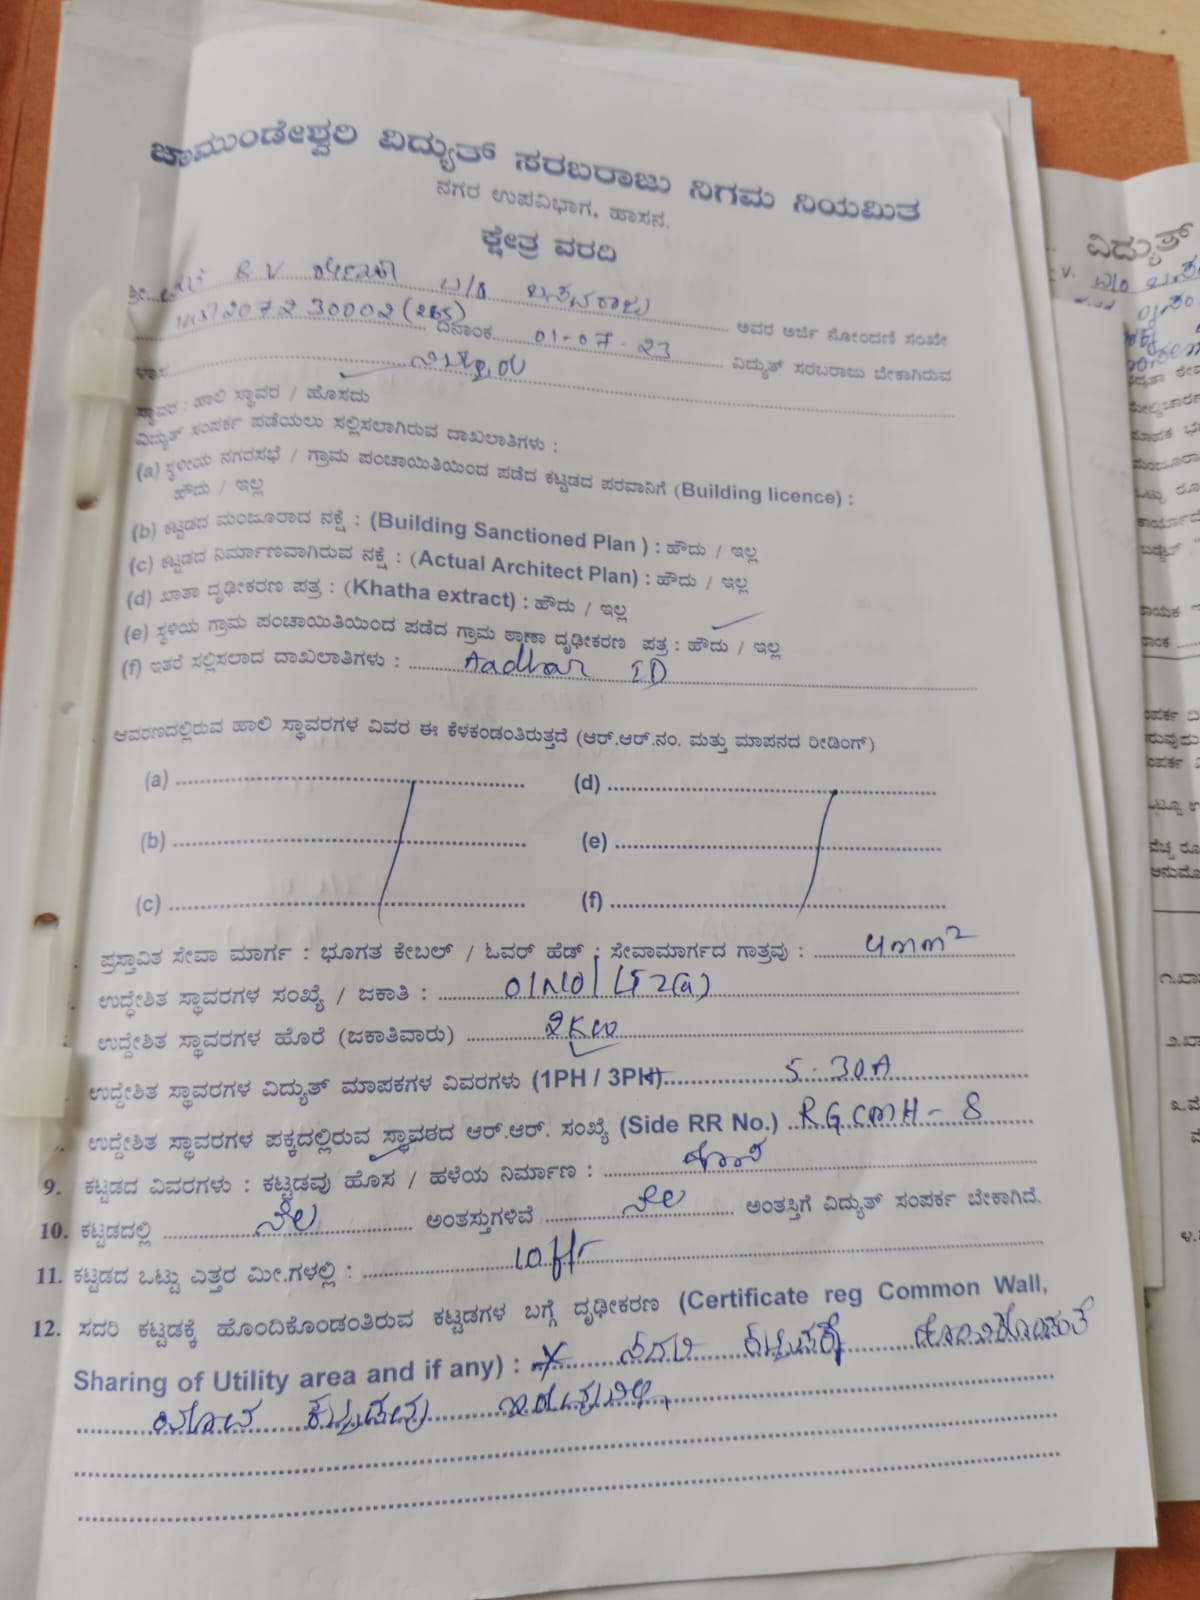 ಚಾಮುಂಡೇಶ್ವರಿ ವಿದ್ಯುತ್ ಸರಬರಾಜು ನಿಗಮ ನಿಯಮಿತ
ನಗರ ಉಪವಿಭಾಗ, ಹಾಸನ.
ಕ್ಷೇತ್ರ ವರದಿ
R V ಬಸವರಾಜು
ಅವರ ಅರ್ಜಿ ನೋಂದಣಿ ಸಂಖ್ಯೇ
ದಿನಾಂಕ 01-07-23 ವಿದ್ಯುತ್ ಸರಬರಾಜು ಬೇಕಾಗಿರುವ
ಸ್ಥಾವರ : ಹಾಲಿ ಸ್ಥಾವರ / ಹೊಸದು
ವಿದ್ಯುತ್ ಸಂಪರ್ಕ ಪಡೆಯಲು ಸಲ್ಲಿಸಲಾಗಿರುವ ದಾಖಲಾತಿಗಳು :
(a) ಸ್ಥಳೀಯ ನಗರಸಭೆ / ಗ್ರಾಮ ಪಂಚಾಯಿತಿಯಿಂದ ಪಡೆದ ಕಟ್ಟಡದ ಪರವಾನಿಗೆ (Building licence) :
ಹೌದು / ಇಲ್ಲ
(b) ಕಟ್ಟಡದ ಮಂಜೂರಾದ ನಕ್ಷೆ : (Building Sanctioned Plan ) : ಹೌದು / ಇಲ್ಲ
(c) ಕಟ್ಟಡದ ನಿರ್ಮಾಣವಾಗಿರುವ ನಕ್ಷೆ : (Actual Architect Plan) : ಹೌದು / ಇಲ್ಲ
(d) ಖಾತಾ ದೃಢೀಕರಣ ಪತ್ರ : (Khatha extract) : ಹೌದು / ಇಲ್ಲ
(e) ಸ್ಥಳಿಯ ಗ್ರಾಮ ಪಂಚಾಯಿತಿಯಿಂದ ಪಡೆದ ಗ್ರಾಮ ಠಾಣಾ ದೃಢೀಕರಣ ಪತ್ರ : ಹೌದು / ಇಲ್ಲ
(f) ಇತರೆ ಸಲ್ಲಿಸಲಾದ ದಾಖಲಾತಿಗಳು : Aadhar ID
ಆವರಣದಲ್ಲಿರುವ ಹಾಲಿ ಸ್ಥಾವರಗಳ ವಿವರ ಈ ಕೆಳಕಂಡಂತಿರುತ್ತದೆ (ಆರ್.ಆರ್.ನಂ. ಮತ್ತು ಮಾಪನದ ರೀಡಿಂಗ್)
(a) (d)
(b) (e)
(c) (f)
ಪ್ರಸ್ತಾವಿತ ಸೇವಾ ಮಾರ್ಗ : ಭೂಗತ ಕೇಬಲ್ / ಓವರ್ ಹೆಡ್ : ಸೇವಾಮಾರ್ಗದ ಗಾತ್ರವು : 4mm²
ಉದ್ಧೇಶಿತ ಸ್ಥಾವರಗಳ ಸಂಖ್ಯೆ / ಜಕಾತಿ : 01No/ LT2(a)
ಉದ್ದೇಶಿತ ಸ್ಥಾವರಗಳ ಹೊರೆ (ಜಕಾತಿವಾರು) 2KW
ಉದ್ದೇಶಿತ ಸ್ಥಾವರಗಳ ವಿದ್ಯುತ್ ಮಾಪಕಗಳ ವಿವರಗಳು (1PH / 3PH) 5-30A
ಉದ್ದೇಶಿತ ಸ್ಥಾವರಗಳ ಪಕ್ಕದಲ್ಲಿರುವ ಸ್ಥಾವರದ ಆರ್.ಆರ್. ಸಂಖ್ಯೆ (Side RR No.) RGCMH-8
9. ಕಟ್ಟಡದ ವಿವರಗಳು : ಕಟ್ಟಡವು ಹೊಸ / ಹಳೆಯ ನಿರ್ಮಾಣ : ಹೊಸ
10. ಕಟ್ಟಡದಲ್ಲಿ ನೆಲ ಅಂತಸ್ತುಗಳಿವೆ ನೆಲ ಅಂತಸ್ತಿಗೆ ವಿದ್ಯುತ್ ಸಂಪರ್ಕ ಬೇಕಾಗಿದೆ.
11. ಕಟ್ಟಡದ ಒಟ್ಟು ಎತ್ತರ ಮೀ.ಗಳಲ್ಲಿ :
12. ಸದರಿ ಕಟ್ಟಡಕ್ಕೆ ಹೊಂದಿಕೊಂಡಂತಿರುವ ಕಟ್ಟಡಗಳ ಬಗ್ಗೆ ದೃಢೀಕರಣ (Certificate reg Common Wall,
Sharing of Utility area and if any) : ಸದರಿ ಕಟ್ಟಡಕ್ಕೆ ಹೊಂದಿಕೊಂಡಂತೆ
ಯಾವ ಕಟ್ಟಡವು ಇರುವುದಿಲ್ಲ
ವಿದ್ಯುತ್